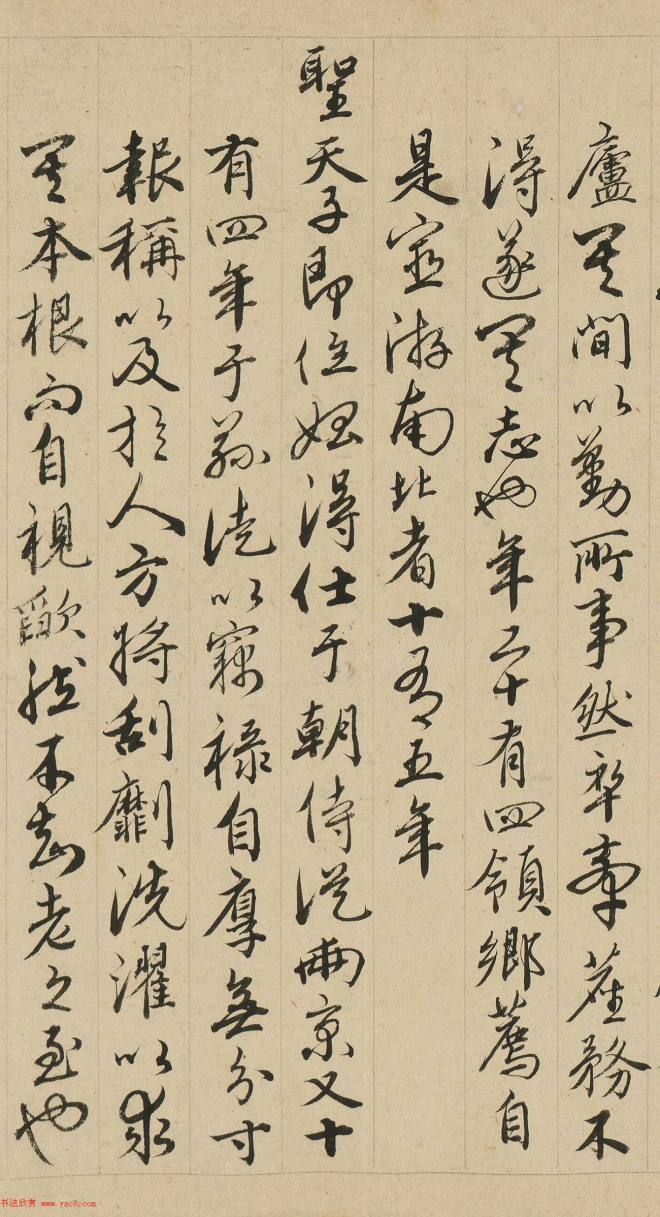 廬其間以勤所事然率牽塵務不
得遂其志也年二十有四領鄉薦自
是宦游南北者十有五年
聖天子即位始得仕于朝侍從兩京又十
有四年于茲徒以竊祿自厚無分寸
報稱以及於人方將刮劘洗濯以求
其本根而自視欿然不知老之至也
书法欣赏 www.yac8.com